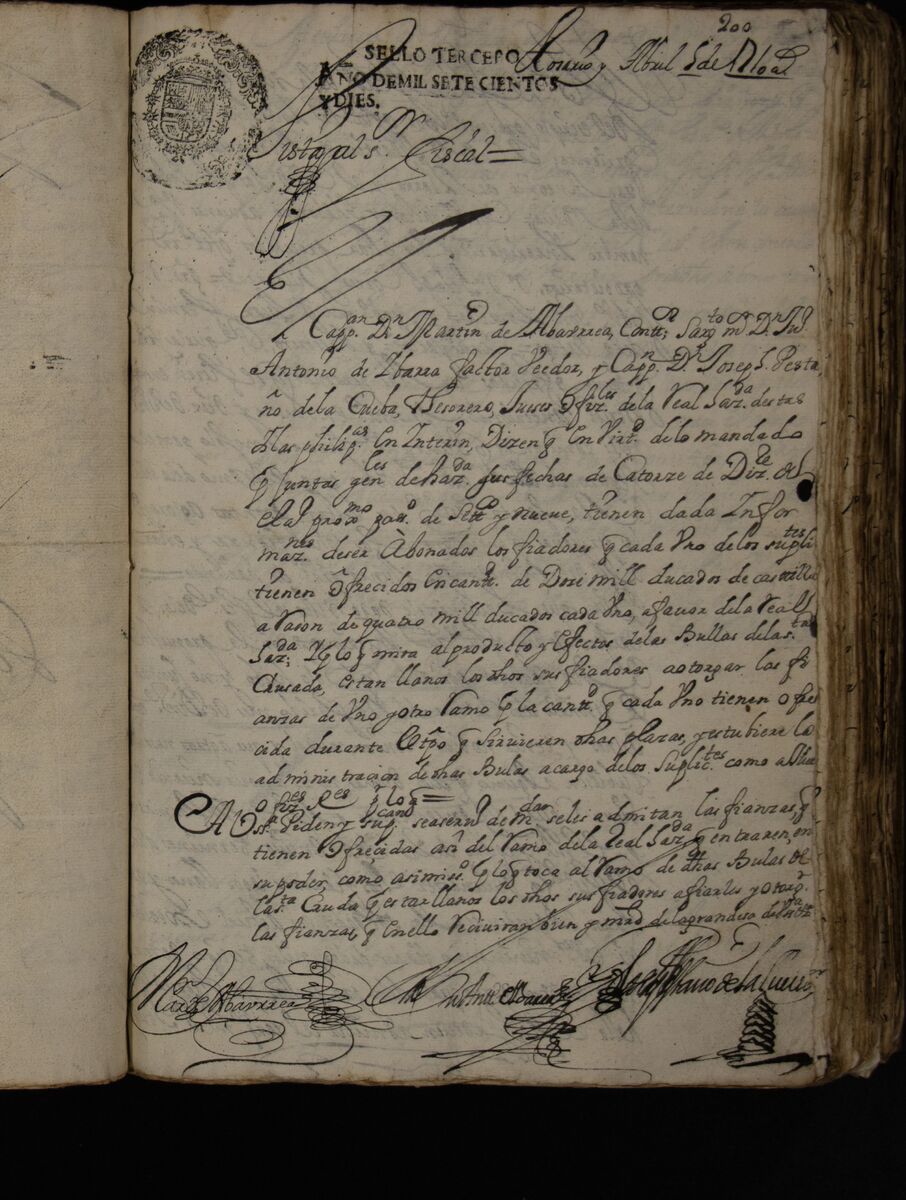 200
SELLO TERCERO
AÑO DE MIL SETECIENTOS
Y DIES.
y Abril 5 de 1710 as
Vista al s.or Fiscal =
Capp.an D.n Martin de Abarrea, Contt.or; Sarg.to m.r D.n Ju.o
Antonio de Ybarra factor Veedor, y Capp.n D.n Joseph Pesta
ño de la Cueba, Thesorero, Jueses ofiz.les de la Real Haz.da destas
Yslas philip.as En Interin, Dizen q En Virt.d de lo mandado
p Juntas gen.les de haz.da sus fechas de Catorze de Diz.re del
el año prox.mo pass.do de Sett.os y nueve, tienen dada Infor
maz.nes de ser Abonados los fiadores q cada Vno de los supli.tes
tienen ofrecidos En cantt.d de Doze mill ducados de castilla
a Razon de quatro mill ducados cada Vno, a favor de la Real
Haz.da; Y p lo q mira al producto y Efectos de las Bullas de la S.ta
Crusada, estan llanos los dhos sus fiadores a otorgar las fi
anzas de Vno y otro Ramo p la cantt.d q cada Vno tienen ofre
cida durante el tpo q sirvieren dhas plazas, y estubiere la
administracion de dhas Bulas a cargo de los Suplic.tes como
ofiz.es R.es p lo q =
A V.S.a Piden y sup.can sea servi.do de m.dar se les admitan las fianzas, q
tienen ofrecidas asi del Ramo de la Real Haz.da q entraren, en
su poder, como asimis.o p lo q toca al Ramo de dhas Bulas de
la S.ta Cruda p estar llanos los dhos sus fiadores a fiarles y otorg.r
las fianzas, q En ello Reciviran bien y mrd de la grandesa de
Mar.n de Abarrea